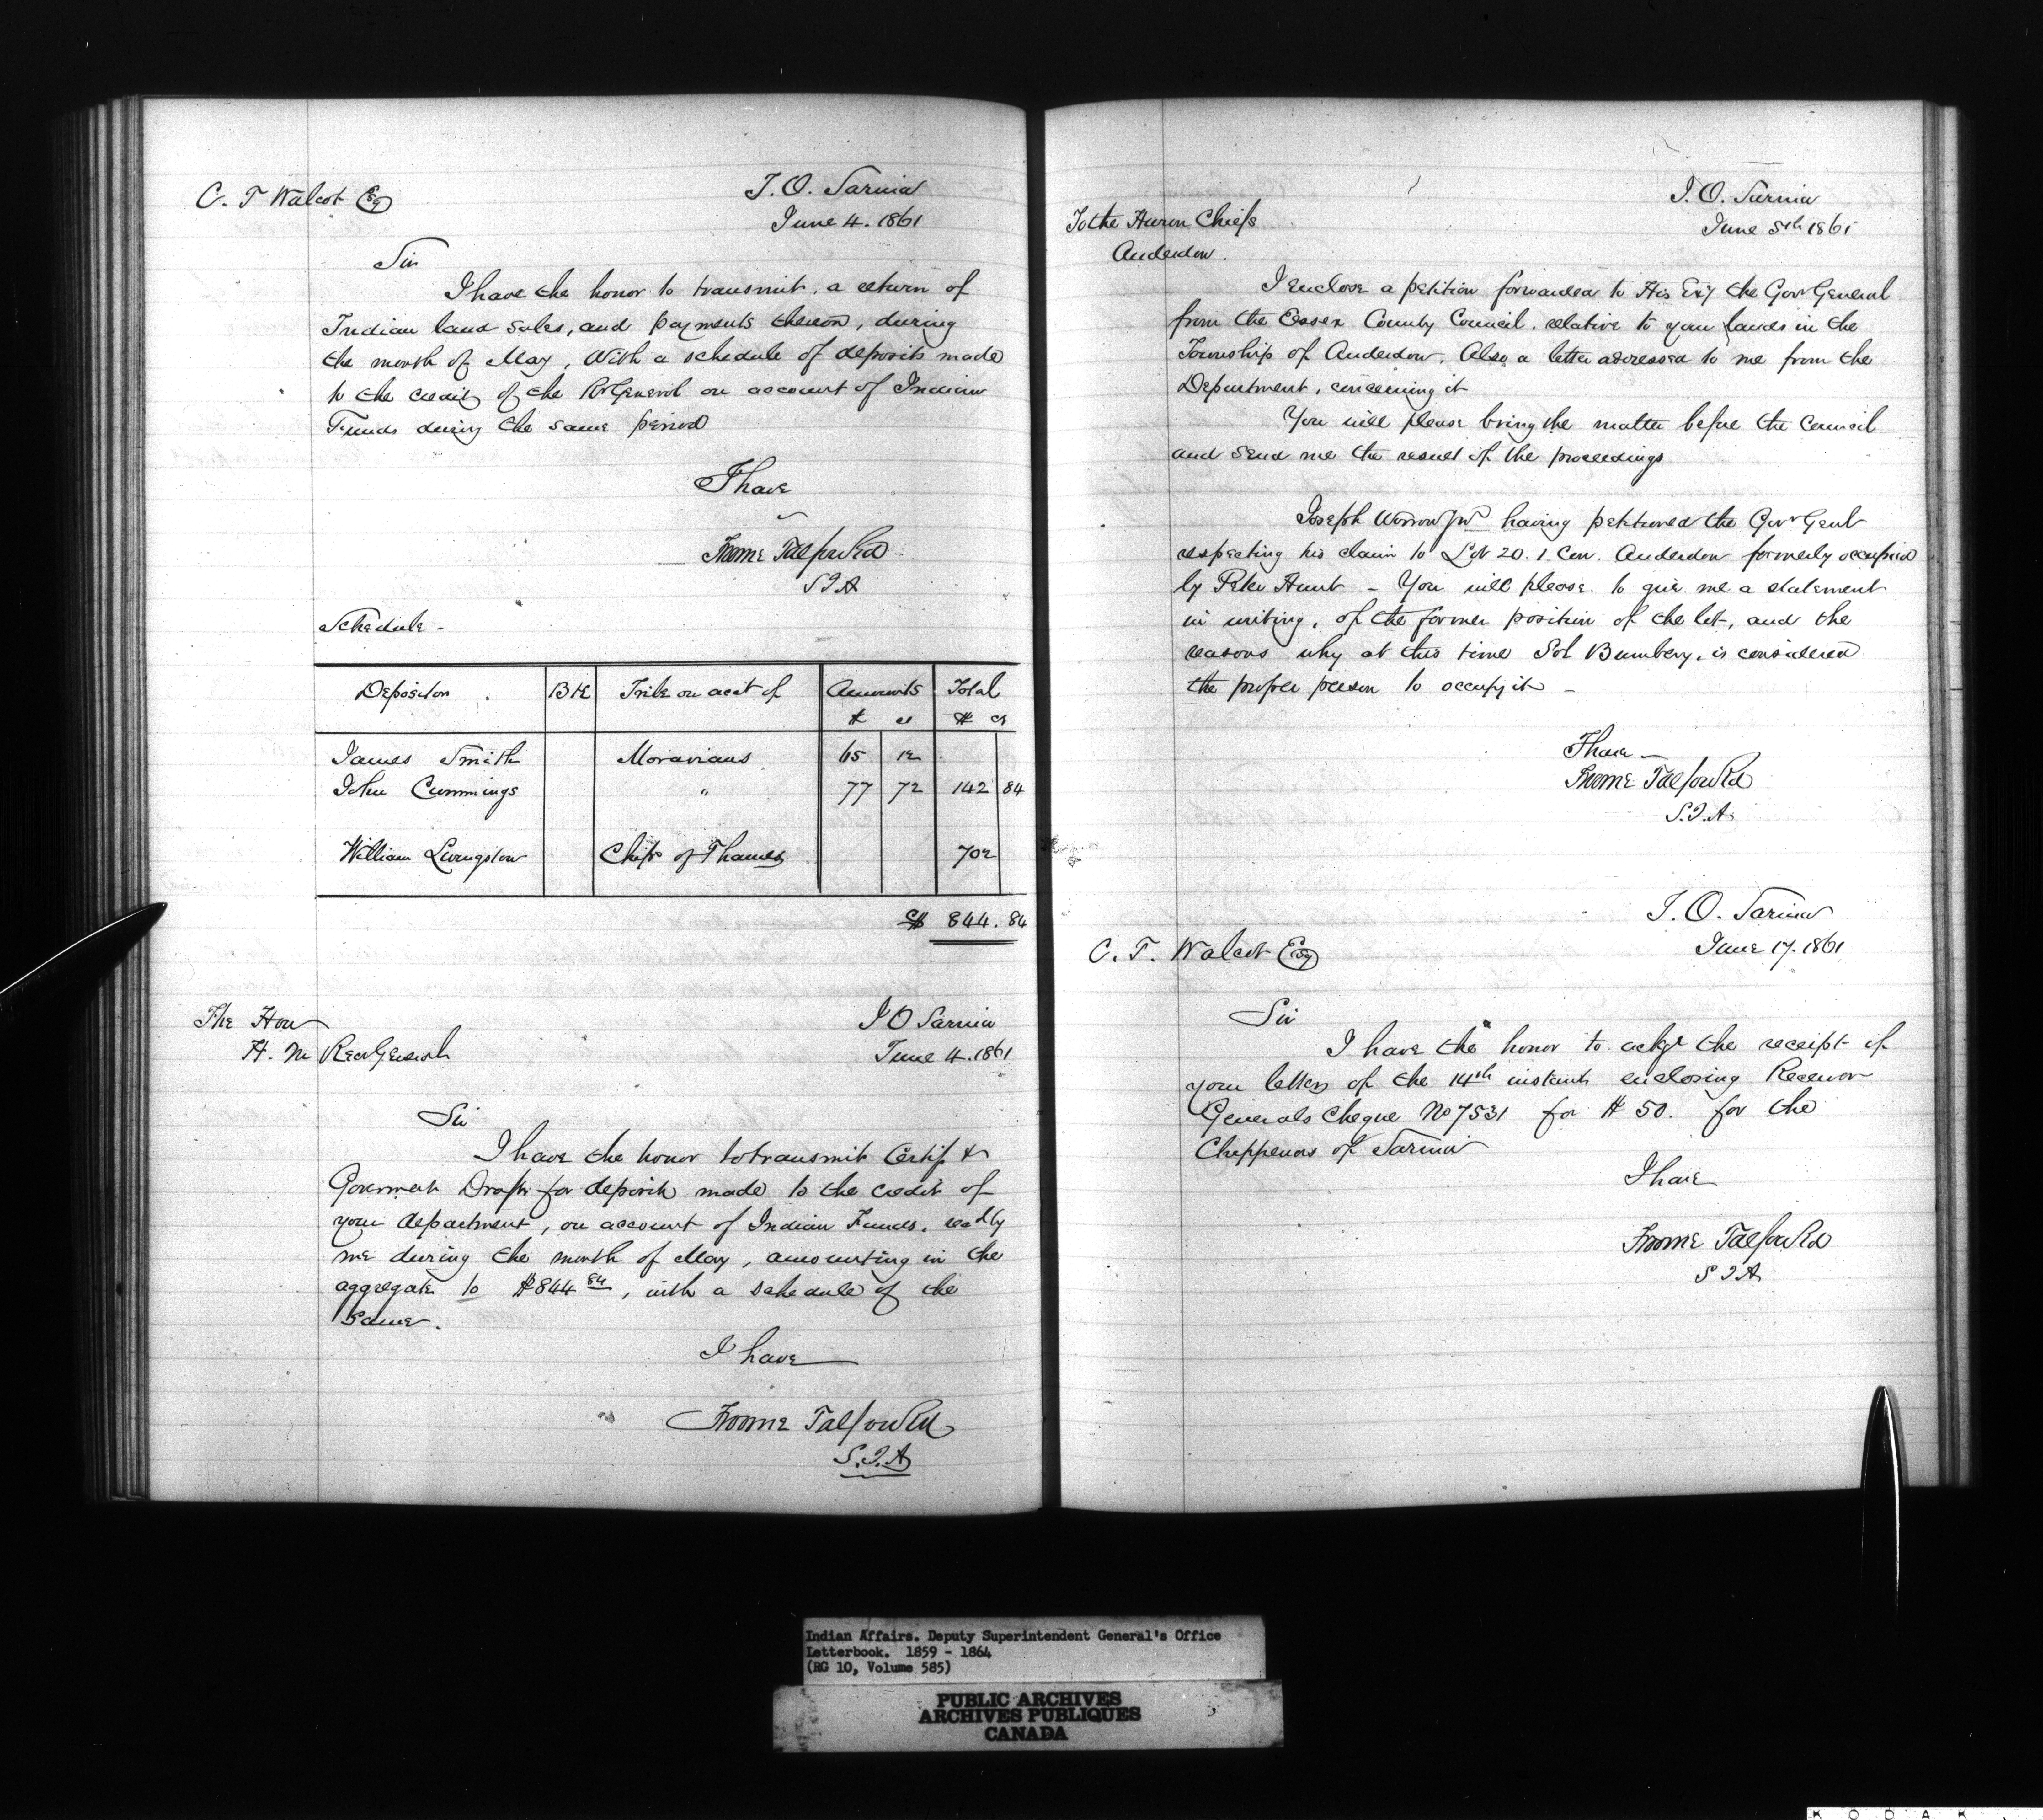 C. T Walcot Esq
I. O. Sarnia
June 4. 1861
Sir
I have the honor to transmit, a return of
Indian land sales, and payments thereon, during
the month of May, With a schedule of deposits made
to the credit of the Rr General on account of Indian
Funds during the same period
I have
Froome Talfourd
S I A
Schedule -
Depositor . BK Tribe on acct of Amounts Total
$ cs $ cs
James Smith Moravians 65 12
John Cummings " 77 72 142 84
William Livingston Chips of Thames 702
$ 844. 84
The Hon
H. M Recr General
I O Sarnia
June 4. 1861
Sir
I have the honor to transmit Certifs &
Goverment Drafts for deposits made to the credit of
your department, on account of Indian Funds. recd by
me during the month of May, amounting in the
aggregate to $844 84, with a schedule of the
Same.
I have
Froome Talfourd
S. I. A
I. O. Sarnia
June 5th 1861
To the Huron Chiefs
Anderdon.
I enclose a petition forwarded to His Exy the Govr General
from the Essex County Council. relative to your lands in the
Township of Anderdon. Also a letter addressed to me from the
Department, concerning it
You will please bring the matter before the Council
and send me the result of the proceedings
Joseph Warrow Jnr having petitioned the Govr Genl
respecting his claim to Lot 20. 1. Con. Anderdon formerly occupied
by Peter Hunt - You will please to give me a statement
in writing, of the former position of the lot, and the
reasons why at this time Sol Bumbery, is considered
the proper person to occupy it -
I have -
Froome Talfourd
S. I. A
I. O. Sarnia
June 17. 1861
C. T. Walcot Esq
Sir
I have the honor to ackge the receipt of
your letters of the 14th instant enclosing Receiver
Generals Cheque No 7531 for $ 50. for the
Chippewas of Sarnia
I have
Froome Talfourd
S I A
Indian Affairs. Deputy Superintendent General's Office
Letterbook. 1859 - 1864
(RG 10, Volume 585)
PUBLIC ARCHIVES
ARCHIVES PUBLIQUES
CANADA
KODAK